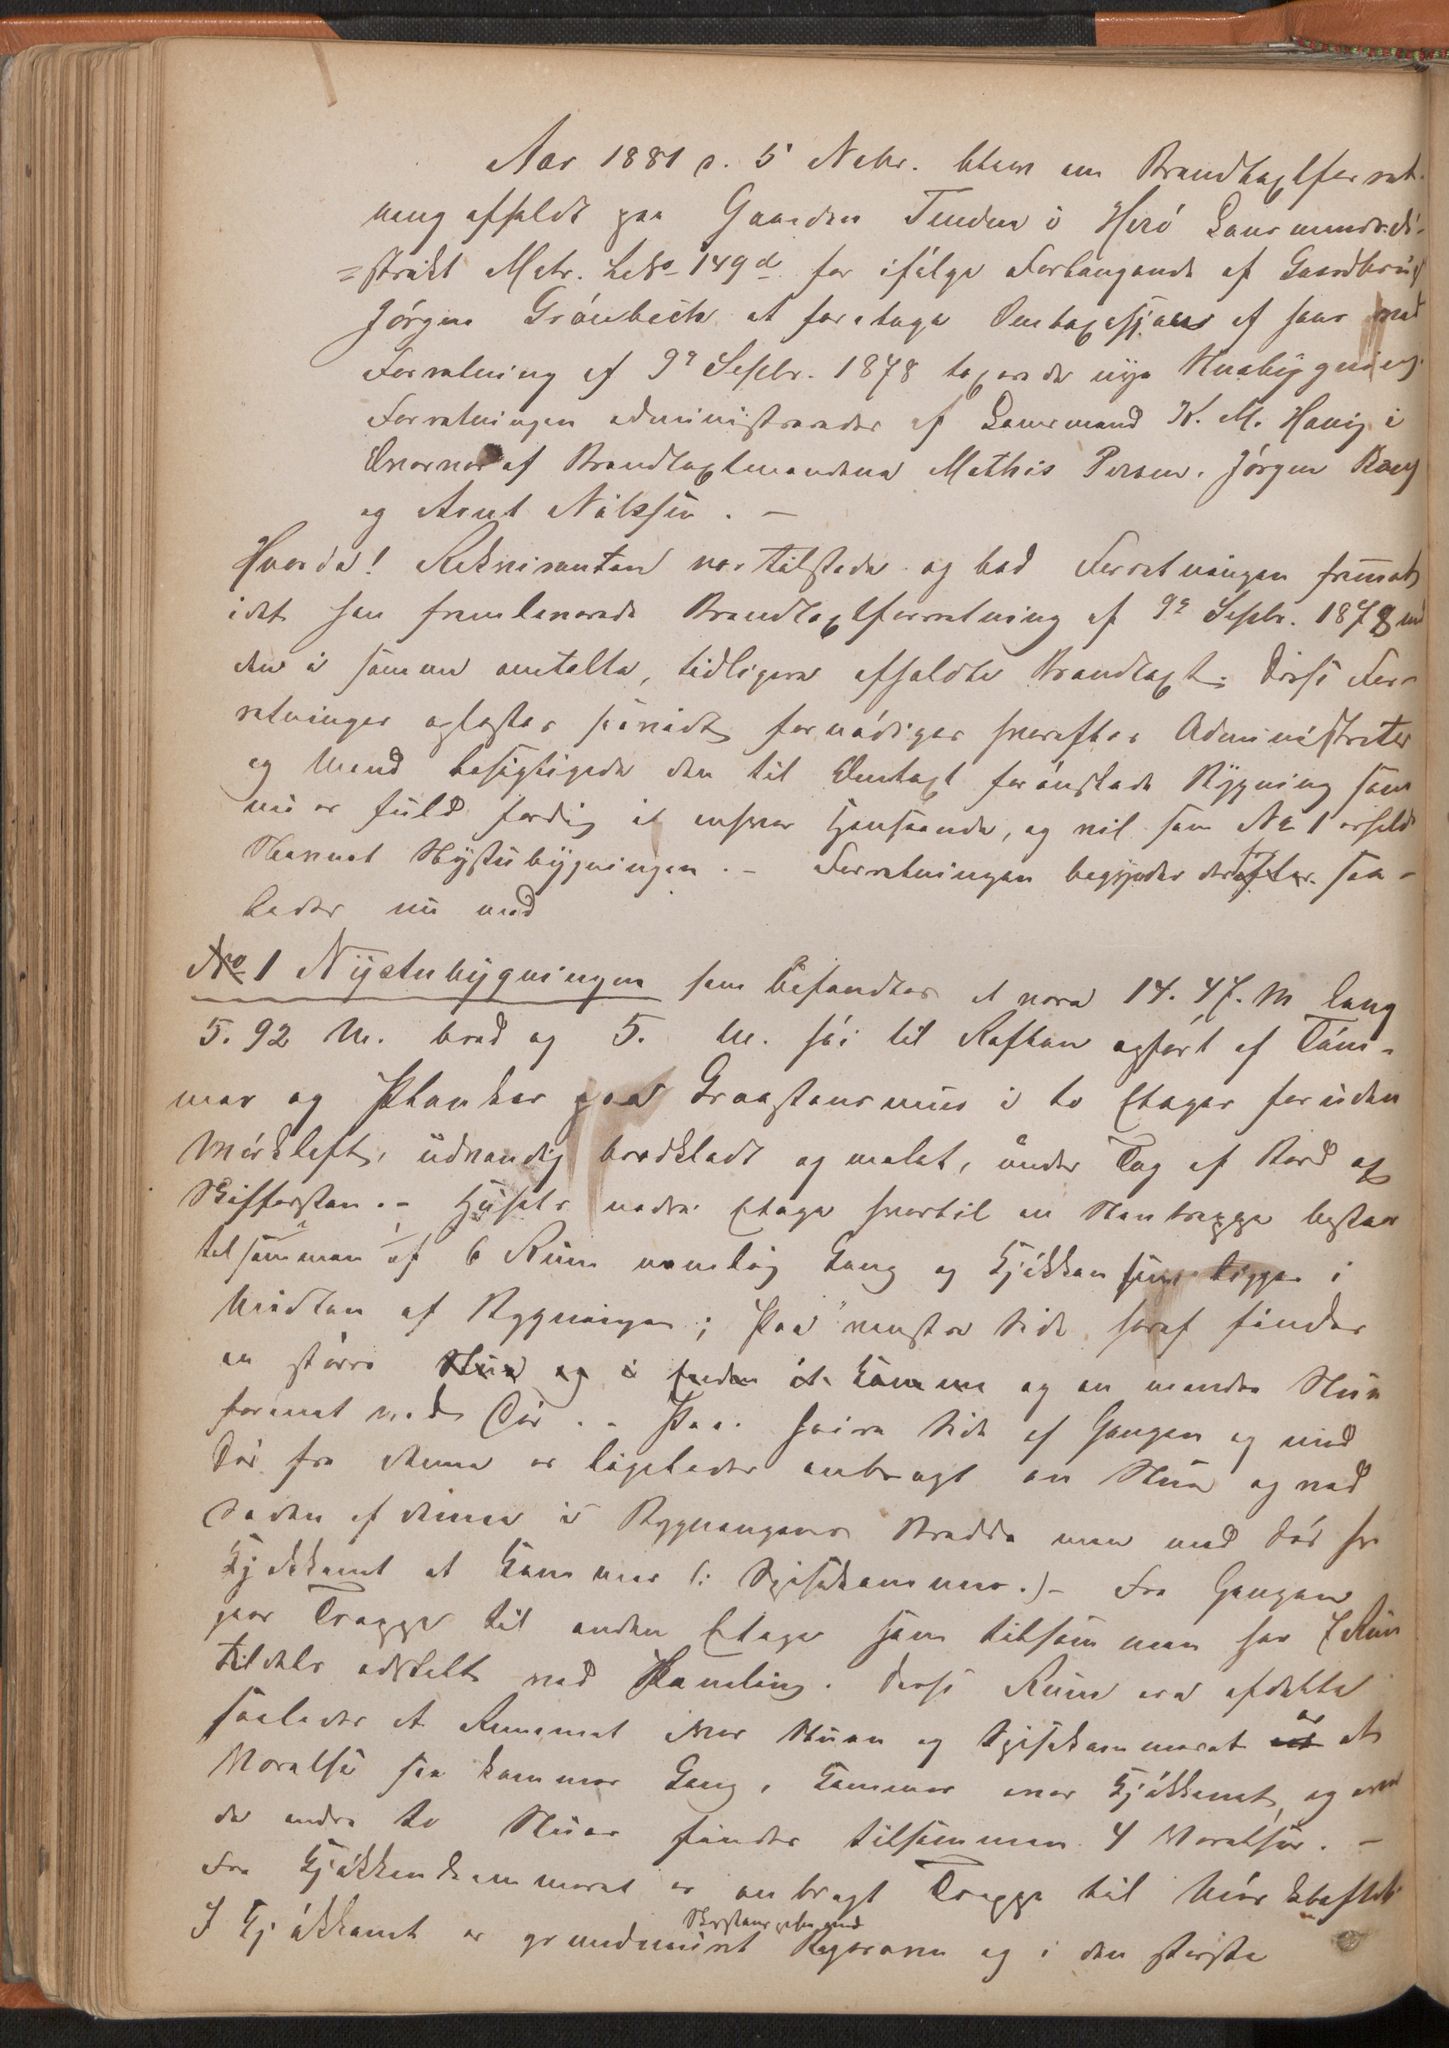 Aar 1881 d. 5 Nvbr. blev en Brandtaxtforret-
ning afholdt paa Gaarden Tenden i Herö Lensmandsdi-
=strikt Matr. Lsbo 149d for ifölge Forlangende af Gaardbrug
Jörgen Grönbech at foretage Omtaxesjon af hans ved
Forretning af 9de Septbr. 1878 taxerede nye Huusbygning
Forretningen administreredes af Lensmand K. M. Havig i
Overvær af Brandtaxtmændene Mathis Persen, Jörgen
og Arnt Nilssen. -
Hvorda! Rekvirenten var tilstede og bad Forretningen fremat
idet han fremleverede Brandtaxtforretning af 9de Septbr. 1878 med
den i samme omtalte, tidligere afholdte Brandtaxt. Disse For-
retninger oplæstes forsaavidt fornödiges hvorefter Administrator
og Mænd besigtigede den til Omtaxt forönskede Bygning som
nu er fuld færdig i enhver Henseende, og vil som No 1 erholde
Navnet Nystubygningen. - Forretningen begynder derefter saa-
ledes nu med
No 1 Nystubygningen som befandtes at være 14.47. M lang
5.92 M. bred og 5. M. höi til Raften opfört af Töm-
mer og Planker paa Graastensmur i to Etager foruden
Mörkloft, udvendig bordklædt og malet, under Tag af Bord og
Skiffersten. - Husets nedre Etage hvortil en Stentrappe bestaar
tilsammen af 6 Rum nemlig Gang og Kjökken som ligger i
Midten af Bygningen; Paa venstre Side heraf findes
en större Stue og i Enden et Kammer og en mindre Stue
forenet med Dör. - Paa höire Side af Gangen og med
Dör fra denne er ligeledes anbragt en Stue og ved
Siden af denne i Bygningens Bredde men med Dör fra
Kjökkenet et Kammer (: Spisekammer.) - Fra Gangen
gaar Trappe til anden Etage som tilsammen har 7 Rum
tildels adskilt med Paneling. Disse Rum ere afdelte
saaledes et Rummet over Stuen og Spisekammeret er et
Værelse saa kommer Gang, Kammer over Kjökkenet, og over
de andre to Stuer findes tilsammen 4 Værelser. -
Fra Kjökkenkammeret er anbragt Trappe til Mörkloftet
Skorstens pibe med
I Kjökkenet er grundmuret Bagerovn og i den störste